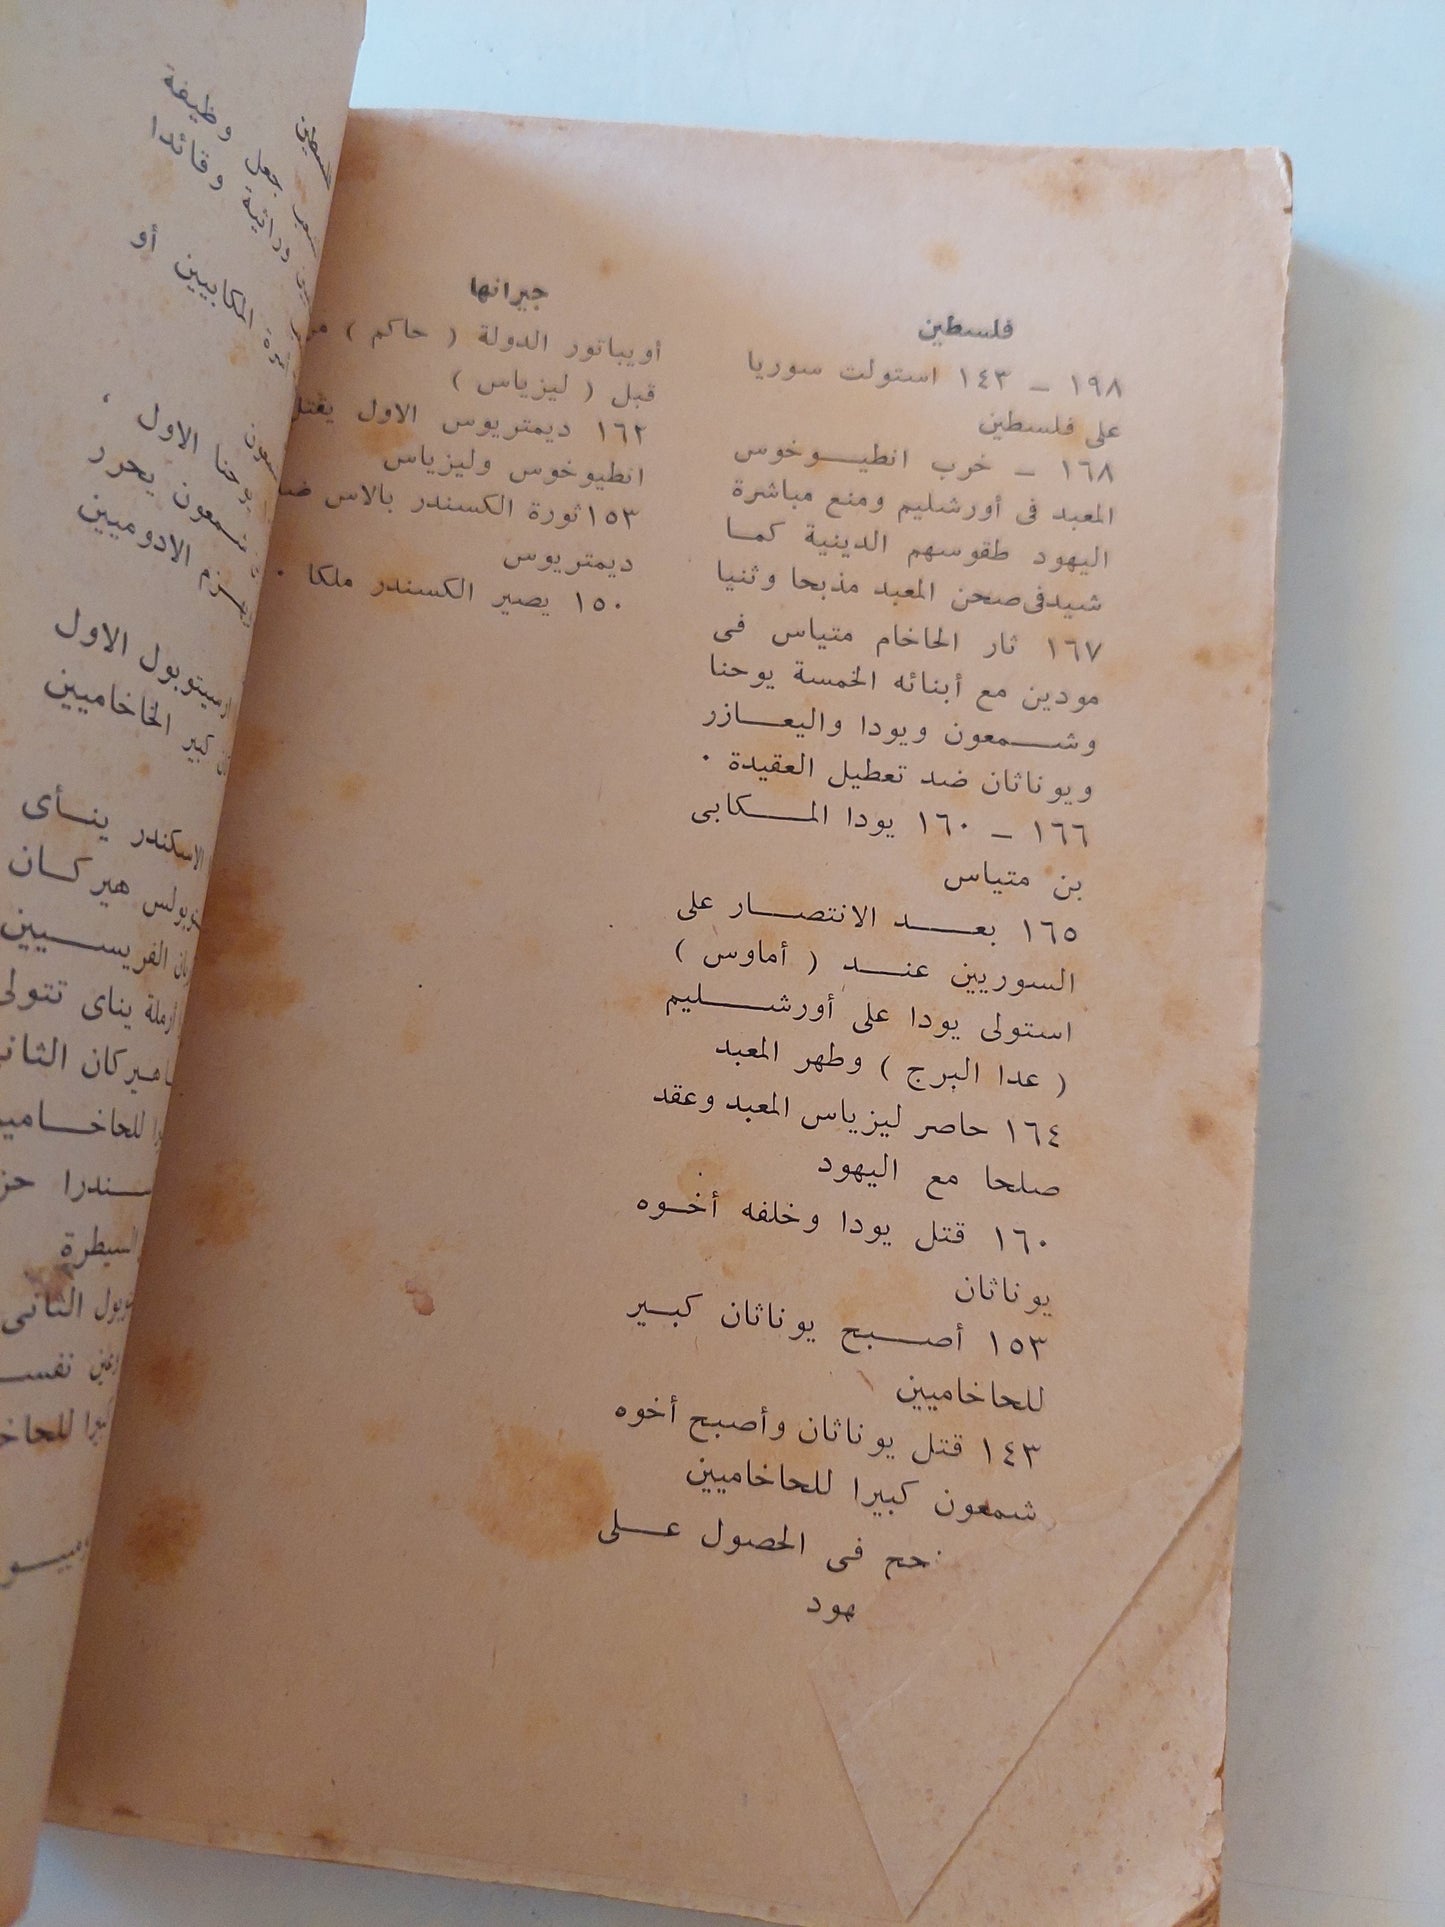 فلسطين
١٩٨ ــ ١٤٣ استولت سوريا
على فلسطين
١٦٨ ــ خرب انطيـــوخوس
المعبد فى أورشليم ومنع مباشرة
اليهود طقوسهم الدينية كمـا
شيدفى صحن المعبد مذبحا وثنيا
١٦٧ ثار الحاخام متياس فى
مودين مع أبنائه الخمسة يوحنا
وشــمعون ويودا واليعــازر
ويوناثان ضد تعطيل العقيدة ٠
١٦٦ ــ ١٦٠ يودا المــكابى
بن متياس
١٦٥ بعــد الانتصــار على
السوريين عنــد ( أماوس )
استولى يودا على أورشــليم
( عدا البرج ) وطهر المعبد
١٦٤ حاصر ليزياس المعبد وعقد
صلحا مع اليهود
١٦٠ قتل يودا وخلفه أخـوه
يوناثان
١٥٣ أصــبح يوناثان كبـير
للحاخاميين
١٤٣ قتل يوناثان وأصبح أخوه
شمعون كبيرا للحاخاميين
حح فى الحصول عــلى
هود
جيرانها
أويباتور الدولة ( حاكم )
قبل ( ليزياس )
١٦٢ ديمتريوس الاول يقتل
انطيوخوس وليزياس
١٥٣ ثورة الكسندر بالاس ضد
ديمتريوس
١٥٠ يصير الكسندر ملكا ٠
جعل وظيفة
وراثية وقائدا
المكابيين أو
يوحنا الاول ،
شمعون يحرر
الادوميين
ارسيتوبول الاول
كبير الحاخاميين
الاسكندر ينـأى
هيركـان
الفريســيين
أرملة يناى تتولى
هيركان الثانى
للحاخـاميـ
السيطرة
الثانى
نفســ
للحاخ